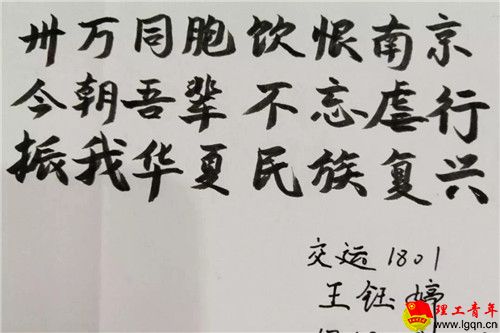 卅万同胞饮恨南京
今朝吾辈不忘虐行
振我华夏民族复兴
交运1801
王钰婷
理工青年
www.lgqn.cn